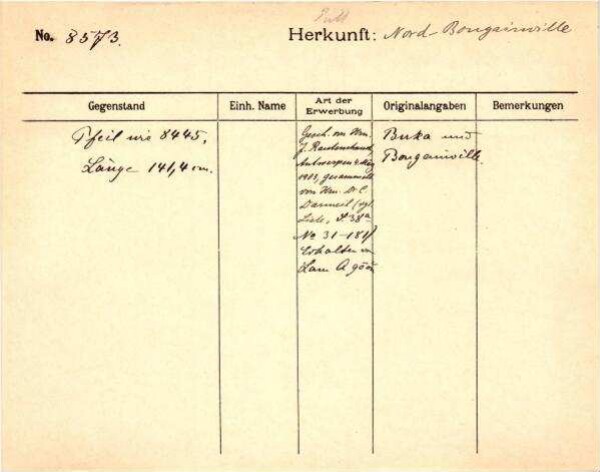 No. 8573.
Herkunft: Nord-Bougainville
Gegenstand
Einh. Name
Art der Erwerbung
Originalangaben
Bemerkungen
Pfeil wie 8445,
Länge 141,4 cm.
Gesch. von Hrn.
J.
Antwerpen
gesammelt
von Hrn. Dr C.
Liste, 38a
No 31-181
Erhalten in
Buka und
Bougainville.